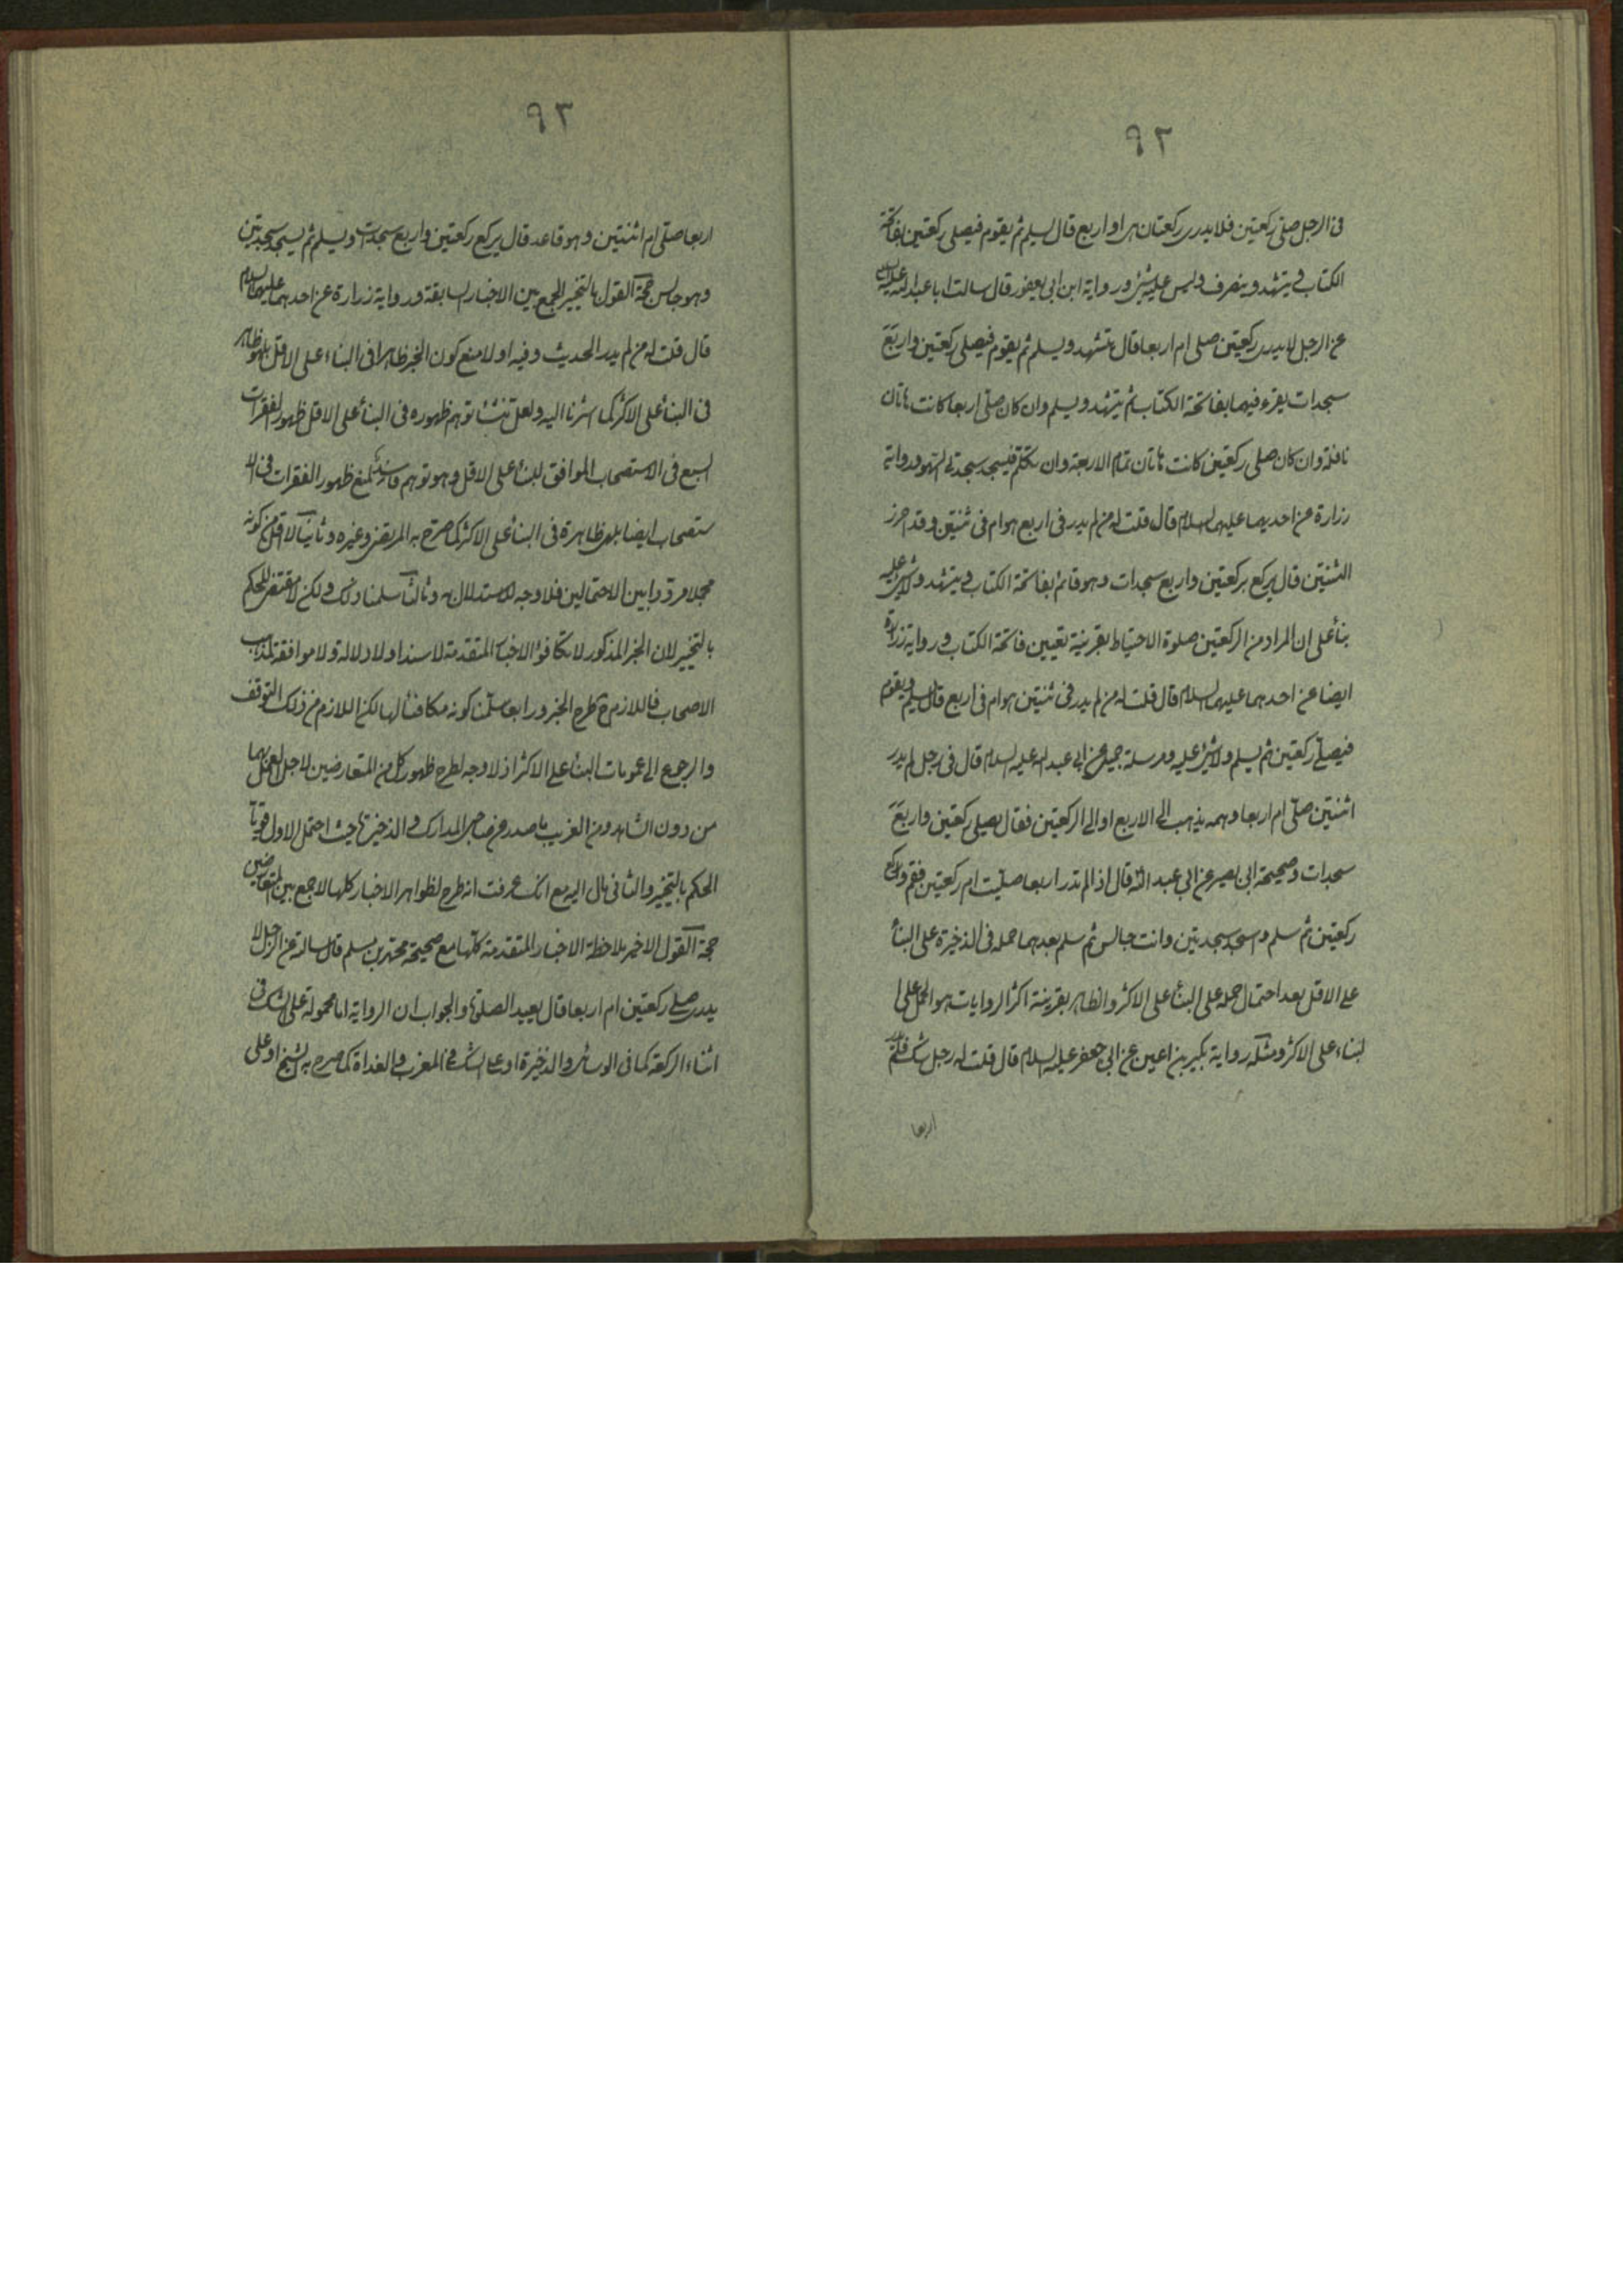 ٩٢
فى الرجل صلى ركعتين فلا يدرى ركعتان هى او اربع قال يسلم ثم يقوم فيصلى ركعتين بفاتحة
الكتاب و يتشهد و ينصرف و ليس عليه شئ و رواية ابن ابى يعفور قال سالت ابا عبد الله عليه السلام
عن الرجل لا يدرى ركعتين صلى ام اربعا قال يتشهد و يسلم ثم يقوم فيصلى ركعتين و اربع
سجدات يقرء فيهما بفاتحة الكتاب ثم يتشهد و يسلم وان كان صلى اربعا كانت هاتان
نافلة وان كان صلى ركعتين كانت هاتان تمام الاربعة وان تكلم فيسجد سجدتى السهو و رواية
زرارة عن احديهما عليهما السلام قال قلت له من لم يدر فى اربع هو ام فى ثنتين و قد احرز
الثنتين قال يركع بركعتين و اربع سجدات و هو قائم بفاتحة الكتاب و يتشهد و لا شئ عليه
بنأ على ان المراد من الركعتين صلوة الاحتياط بقرينة تعيين فاتحة الكتاب و رواية زرارة
ايضا عن احدهما عليهما السلام قال قلت له من لم يدر فى ثنتين هو ام فى اربع قال يسلم و يقوم
فيصلى ركعتين ثم يسلم و لا شئ عليه و مرسلة جميل عن ابى عبد الله عليه السلام قال فى رجل لم يدر
اثنتين صلى ام اربعا و همه يذهب الى الاربع او الى الركعتين فقال يصلى ركعتين و اربع
سجدات و صحيحة ابى بصير عن ابى عبد الله قال اذا لم تدر اربعا صليت ام ركعتين فقم و اركع
ركعتين ثم سلم و اسجد سجدتين وانت جالس ثم سلم بعدهما حمله فى الذخيرة على البنأ
على الاقل بعد احتمال حمله على البنأ على الاكثر و الظاهر بقرينة اكثر الروايات هو الحمل على ا
لبناء على الاكثر و مثله رواية بكير بن اعين عن ابى جعفر عليه السلام قال قلت له رجل شك فلم يدر
اربعا
٩٣
اربعا صلى ام اثنتين و هو قاعد قال يركع ركعتين و اربع سجدات و يسلم ثم يسجد سجدتين
و هو جالس حجة القول بالتخيير الجمع بين الاخبار السابقة و رواية زرارة عن احدهما عليهما السلام
قال قلت له من لم يدر الحديث و فيه اولا منع كون الخبر ظاهرا فى البناء على الاقل بل هو ظاهر
فى البنأ على الاكثر كما اشرنا اليه و لعل منشأ توهم ظهوره فى البنأ على الاقل ظهور الفقرات
السبع فى الاستصحاب الموافق للبنأ على الاقل و هو توهم فاسد لمنع ظهور الفقرات فى الا
ستصحاب ايضا بل هى ظاهرة فى البنأ على الاكثر كما صرح به المرتضى و غيره و ثانيا لا اقل من كونه
مجملا مرددا بين الاحتمالين فلا وجه للاستدلال به و ثالثا سلمنا ذلك و لكن لا مقتضى للحكم
بالتخيير لان الخبر المذكور لا يكافؤ الاخبار المتقدمة لا سندا و لا دلالة و لا موافقة لمذهب
الاصحاب فاللازم ح طرح الخبر و رابعا سلمنا كونه مكافئا لها لكن اللازم من ذلك التوقف
و الرجوع الى عمومات البنأ على الاكثر اذ لا وجه لطرح ظهور كل من المتعارضين لاجل العمل بهما
من دون الشاهد و من الغريب ما صدر من صاحبى المدارك و الذخيرة حيث احتمل الاول قويا
الحكم بالتخيير و الثانى مال اليه مع انك عرفت انه طرح لظواهر الاخبار كلها لا جمع بين المتعارضين
حجة القول الاخير ملاحظة الاخبار المتقدمة كلها مع صحيحة محمد بن مسلم قال سالته عن الرجل لا
يدرى صلى ركعتين ام اربعا قال يعيد الصلوة و الجواب ان الرواية اما محمولة على الشك فى
اثناء الركعة كما فى الوسائل و الذخيرة او على الشك فى المغرب و الغداة كما صرح به الشيخ او على